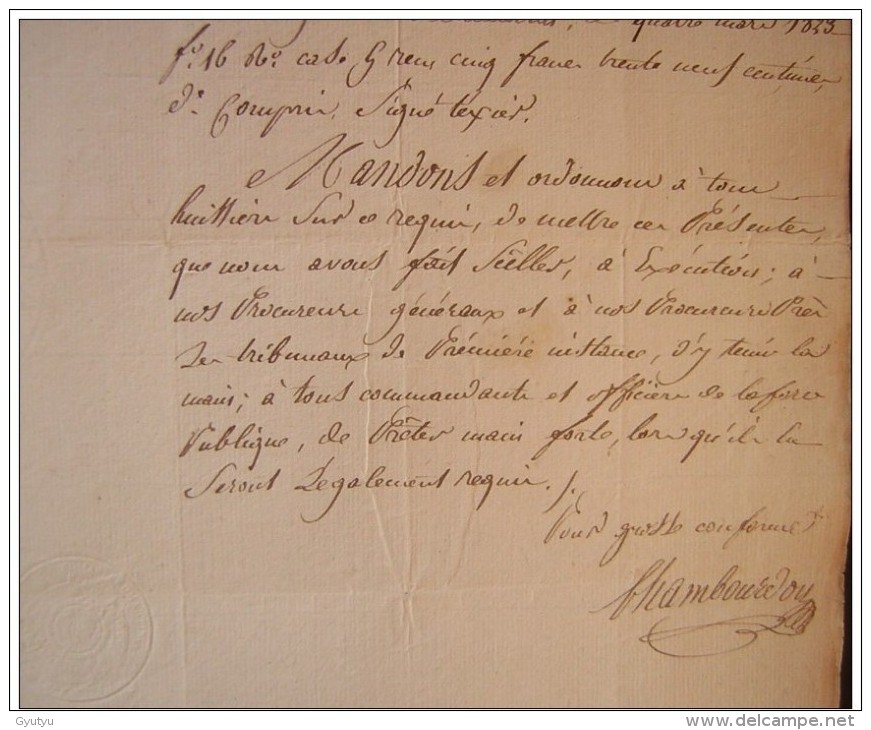 quatre mars 1823
fo. 16 Ro. case 5 reçu cinq francs trente neuf centimes,
de. Compris. Signé texier.
Mandons et ordonnons à tous
huissiers sur ce requis, de mettre ces Présentes,
que nous avons fait Sceller, à Exécution; à
nos Procureurs généraux et à nos Procureurs Près
les tribunaux de Première instance, d'y tenir la
main; à tous commandants et officiers de la force
Publique, de Prêter main forte, lorsqu'ils en
Seront Légalement requis./.
Pour grosse conforme
Chambourdon
Gyutyu
www.delcampe.net